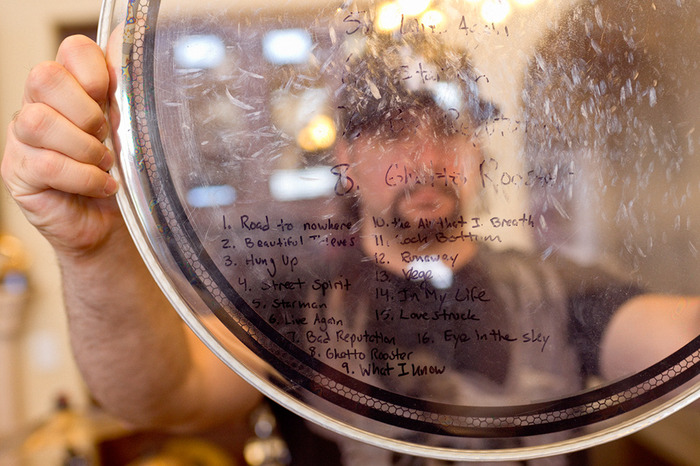 Again
8. Ghetto Rooster
1. Road to nowhere
2. Beautiful Thieves
3. Hung Up
4. Street Spirit
5. Starman
6. Live Again
7. Bad Reputation
8. Ghetto Rooster
9. What I know
10. the Air that I Breath
11. Rock Bottom
12. Runaway
13. Vege
14. In My Life
15. Love struck
16. Eye in the sky